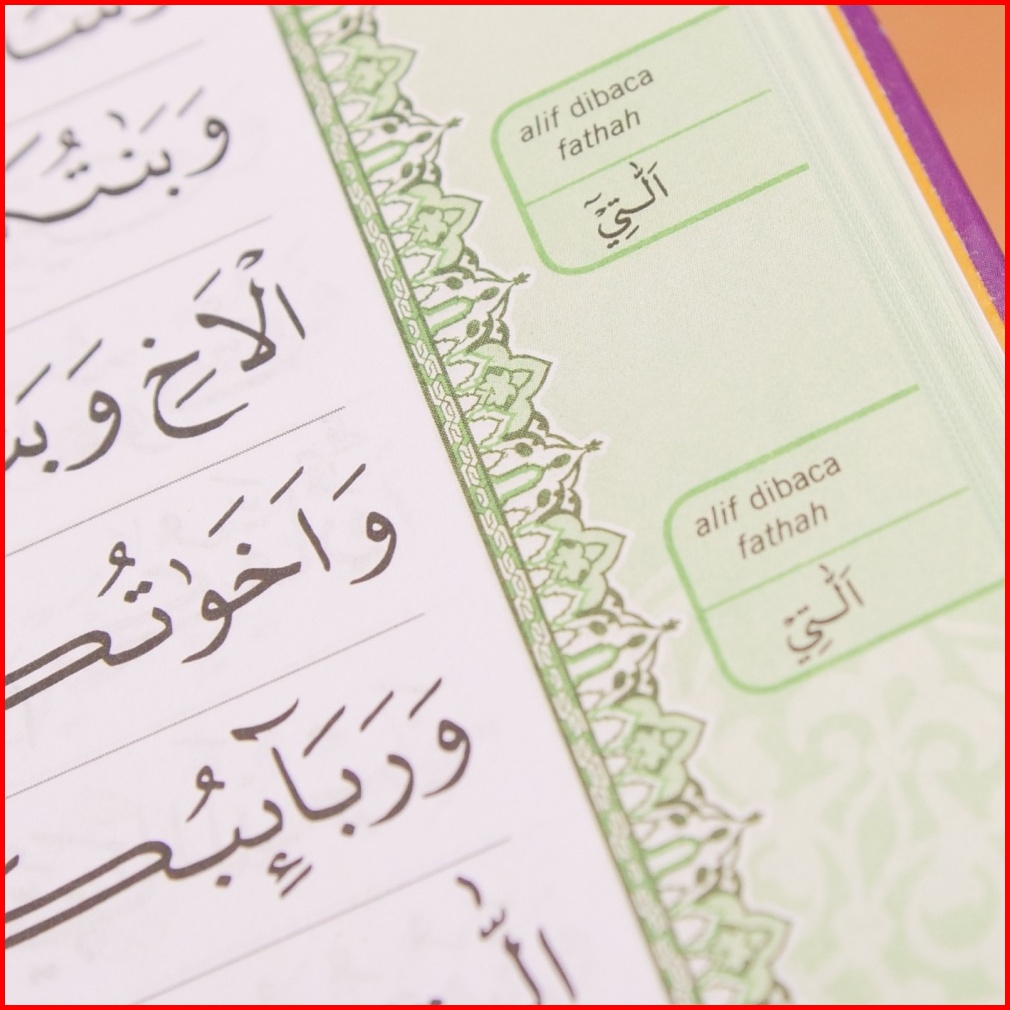 وَبَنٰتُ
الْاَخِ وَ
وَاَخَوٰتُكـ
وَرَبَاۤىِٕبُكـ
alif dibaca
fathah
اَلّٰتِيْٓ
alif dibaca
fathah
اَلّٰتِيْ